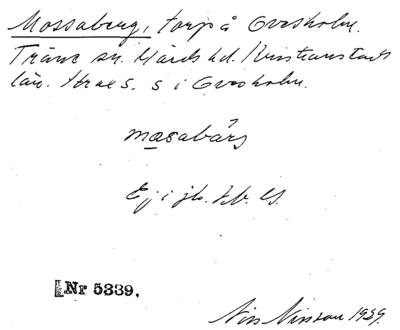 Mossaberg, torp å Ovesholm.
Träne sn. Gärds hd. Kristianstads
län. Strax S. s i Ovesholm.
masabärj
Ej i jb. t.b. el.
Nr 5339.
Nils Nilsson 1929.